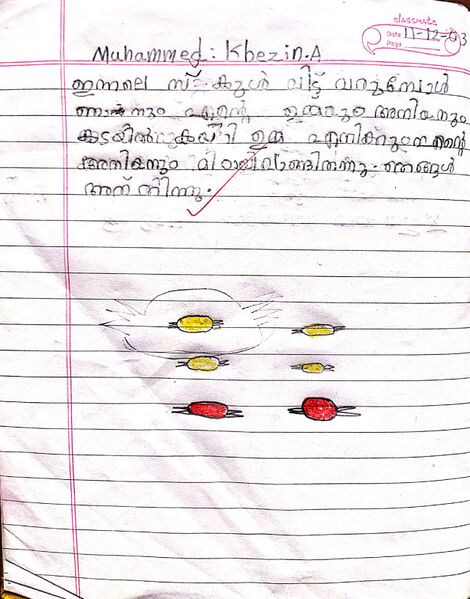 classmate
Date 11-12-23
Page
Muhammed: Khezin.A
ഇന്നലെ സ്കൂൾ വിട്ട് വരുമ്പോൾ
ഞാനും എന്റെ ഉമ്മയും അനിയനും
കടയിൽ കയറി ഉമ്മ എനിക്കും എന്റെ
അനിയനും മിഠായി വാങ്ങിതന്നു. ഞങ്ങൾ
അത് തിന്നു.